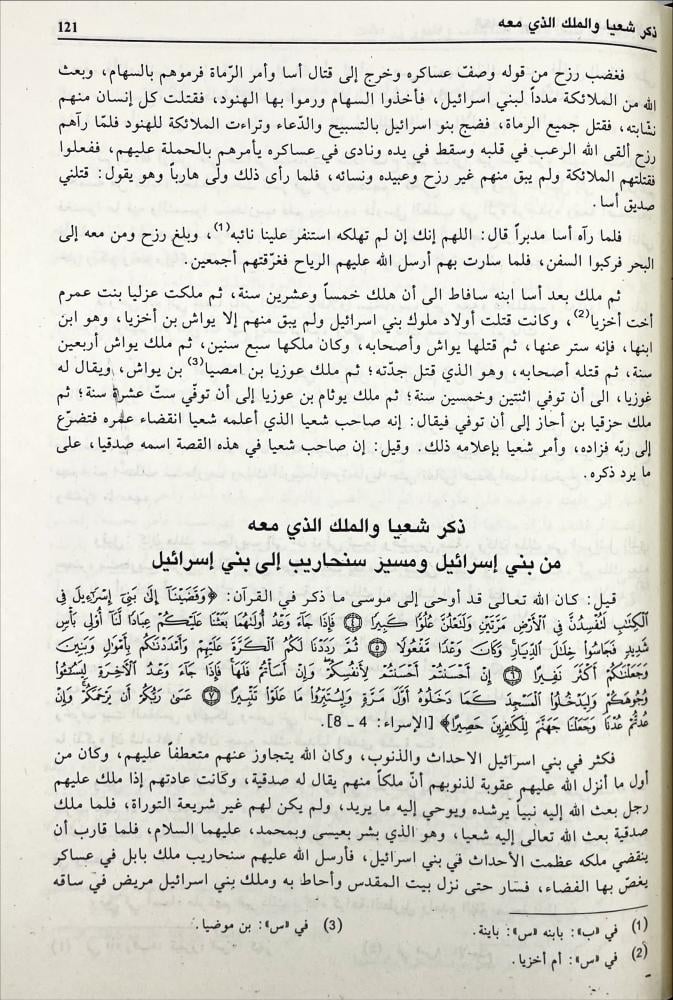 ذكر شعيا والملك الذي معه
121
فغضب رزح من قوله وصفّ عساكره وخرج إلى قتال أسا وأمر الرّماة فرموهم بالسهام، وبعث
الله من الملائكة مدداً لبني اسرائيل، فأخذوا السهام ورموا بها الهنود، فقتلت كل إنسان منهم
نشّابته، فقتل جميع الرماة، فضج بنو اسرائيل بالتسبيح والدّعاء وتراءت الملائكة للهنود فلمّا رآهم
رزح ألقى الله الرعب في قلبه وسقط في يده ونادى في عساكره يأمرهم بالحملة عليهم، ففعلوا
فقتلتهم الملائكة ولم يبق منهم غير رزح وعبيده ونسائه، فلما رأى ذلك ولّى هارباً وهو يقول: قتلني
صديق أسا.
فلما رآه أسا مدبراً قال: اللهم إنك إن لم تهلكه استنفر علينا نائبه(1)، وبلغ رزح ومن معه إلى
البحر فركبوا السفن، فلما سارت بهم أرسل الله عليهم الرياح فغرّقتهم أجمعين.
ثم ملك بعد أسا ابنه سافاط الى أن هلك خمساً وعشرين سنة، ثم ملكت عزليا بنت عمرم
أخت أخزيا(2)، وكانت قتلت أولاد ملوك بني اسرائيل ولم يبق منهم إلا يواش بن أخزيا، وهو ابن
ابنها، فإنه ستر عنها، ثم قتلها يواش وأصحابه، وكان ملكها سبع سنين، ثم ملك يواش أربعين
سنة، ثم قتله أصحابه، وهو الذي قتل جدّته؛ ثم ملك عوزيا بن امصيا(3) بن يواش، ويقال له
غوزيا، الى أن توفي اثنتين وخمسين سنة؛ ثم ملك يوثام بن عوزيا إلى أن توفّي ستّ عشرة سنة؛ ثم
ملك حزقيا بن أحاز إلى أن توفي فيقال: إنه صاحب شعيا الذي أعلمه شعيا انقضاء عمره فتضرّع
إلى ربّه فزاده، وأمر شعيا بإعلامه ذلك. وقيل: إن صاحب شعيا في هذه القصة اسمه صدقيا، على
ما يرد ذكره.
ذكر شعيا والملك الذي معه
من بني إسرائيل ومسير سنحاريب إلى بني إسرائيل
قيل: كان الله تعالى قد أوحى إلى موسى ما ذكر في القرآن: ﴿وَقَضَيْنَآ إِلَىٰ بَنِىٓ إِسْرَٰٓءِيلَ فِى
ٱلْكِتَٰبِ لَتُفْسِدُنَّ فِى ٱلْأَرْضِ مَرَّتَيْنِ وَلَتَعْلُنَّ عُلُوًّا كَبِيرًا ٤ فَإِذَا جَآءَ وَعْدُ أُولَىٰهُمَا بَعَثْنَا عَلَيْكُمْ عِبَادًا لَّنَآ أُو۟لِى بَأْسٍ
شَدِيدٍ فَجَاسُوا۟ خِلَٰلَ ٱلدِّيَارِ وَكَانَ وَعْدًا مَّفْعُولًا ٥ ثُمَّ رَدَدْنَا لَكُمُ ٱلْكَرَّةَ عَلَيْهِمْ وَأَمْدَدْنَٰكُم بِأَمْوَٰلٍ وَبَنِينَ
وَجَعَلْنَٰكُمْ أَكْثَرَ نَفِيرًا ٦ إِنْ أَحْسَنتُمْ أَحْسَنتُمْ لِأَنفُسِكُمْ وَإِنْ أَسَأْتُمْ فَلَهَا فَإِذَا جَآءَ وَعْدُ ٱلْءَاخِرَةِ لِيَسُۥٓـُٔوا۟
وُجُوهَكُمْ وَلِيَدْخُلُوا۟ ٱلْمَسْجِدَ كَمَا دَخَلُوهُ أَوَّلَ مَرَّةٍ وَلِيُتَبِّرُوا۟ مَا عَلَوْا۟ تَتْبِيرًا ٧ عَسَىٰ رَبُّكُمْ أَن يَرْحَمَكُمْ وَإِنْ
عُدتُّمْ عُدْنَا وَجَعَلْنَا جَهَنَّمَ لِلْكَٰفِرِينَ حَصِيرًا﴾ [الإسراء: 4 – 8].
فكثر في بني اسرائيل الاحداث والذنوب، وكان الله يتجاوز عنهم متعطفاً عليهم، وكان من
أول ما أنزل الله عليهم عقوبة لذنوبهم أنّ ملكاً منهم يقال له صدقية، وكانت عادتهم إذا ملك عليهم
رجل بعث الله إليه نبياً يرشده ويوحي إليه ما يريد، ولم يكن لهم غير شريعة التوراة، فلما ملك
صدقية بعث الله تعالى إليه شعيا، وهو الذي بشر بعيسى وبمحمد، عليهما السلام، فلما قارب أن
ينقضي ملكه عظمت الأحداث في بني اسرائيل، فأرسل الله عليهم سنحاريب ملك بابل في عساكر
يغصّ بها الفضاء، فسار حتى نزل بيت المقدس وأحاط به وملك بني اسرائيل مريض في ساقه
(1) في «ب»: بابنه «س»: باينة.
(3) في «س»: بن موضيا.
(2) في «س»: أم أخزيا.